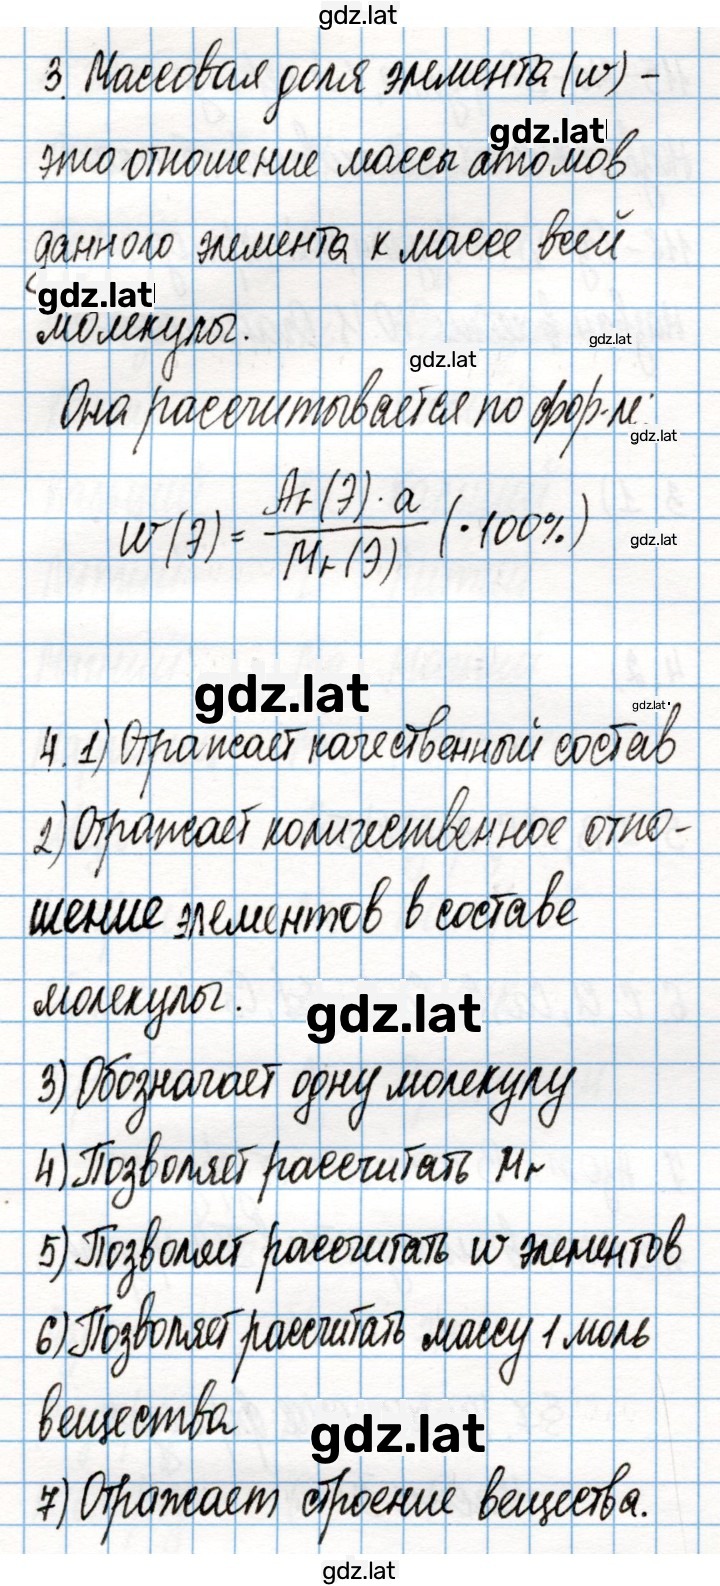 gdz.lat
3. Массовая доля элемента (w) –
gdz.lat
это отношение массы атомов
данного элемента к массе всей
gdz.lat
молекулы.
gdz.lat
gdz.lat
Она рассчитывается по фор-ле:
gdz.lat
w(Э) = Ar(Э) · a / Mr(Э) (· 100%)
gdz.lat
gdz.lat
gdz.lat
4. 1) Отражает качественный состав
2) Отражает количественное отно-
шение элементов в составе
молекулы.
gdz.lat
3) Обозначает одну молекулу
4) Позволяет рассчитать Mr
5) Позволяет рассчитать w элементов
6) Позволяет рассчитать массу 1 моль
вещества
gdz.lat
7) Отражает строение вещества.
gdz.lat